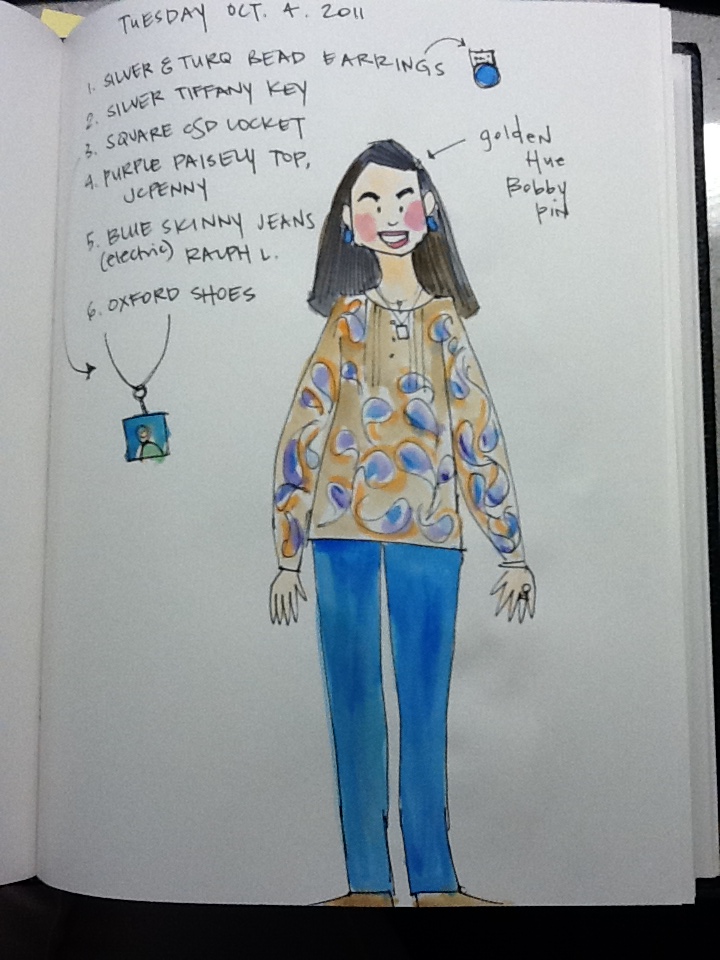 TUESDAY OCT. 4. 2011
1. SILVER & TURQ BEAD EARRINGS
2. SILVER TIFFANY KEY
3. SQUARE CSD LOCKET
4. PURPLE PAISELY TOP,
JCPENNY
5. BLUE SKINNY JEANS
(electric) RALPH L.
6. OXFORD SHOES
golden
Hue
Bobby
pin